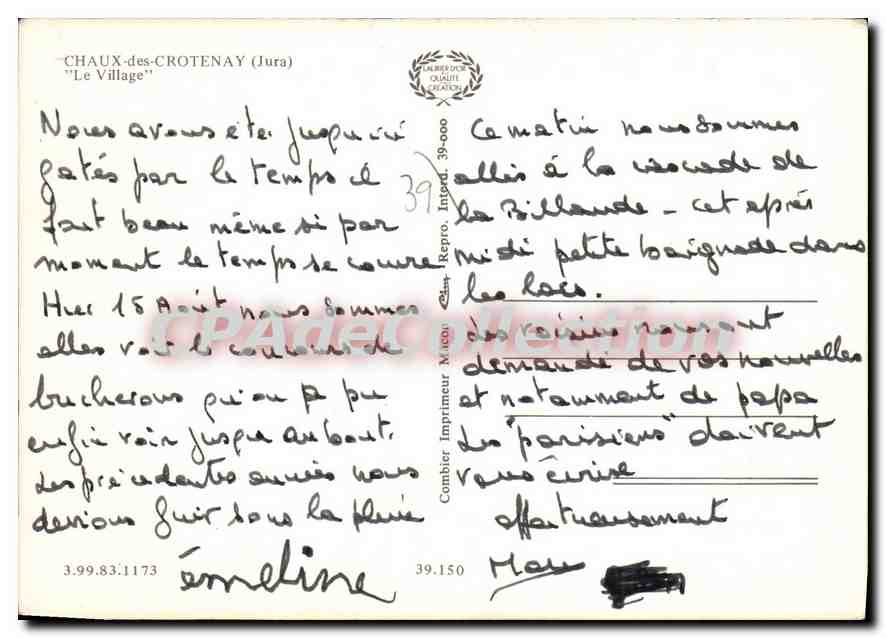 CHAUX-des-CROTENAY (Jura)
"Le Village"
LAURIER D'OR
QUALITÉ
CRÉATION
Nous avons été jusqu'ici
gatés par le temps il
fait beau même si par
moment le temps se couvre
Hier 15 Août nous sommes
allés voir le concours de
bucherons qu'on a pu
enfin voir jusqu'au bout.
Les précédentes années nous
devions fuir sous la pluie
émeline
3.99.83.1173
39
Combier Imprimeur Macon Cim Repro. Interd. 39-000
Ce matin nous sommes
allés à la cascade de
la Billaude - cet après
midi petite baignade dans
les lacs.
des voisins nous ont
demandé de vos nouvelles
et notamment de papa
Les "parisiens" doivent
vous écrire
affectueusement
39.150
CPAdeCollection